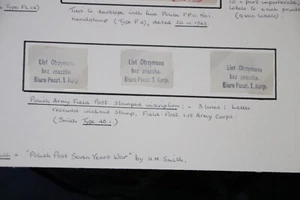 Type F2(a)
Just to envelope with two Polish F.P.O. No.1
handstamp (Type F2),
labels to
List Otrzymano
bez znaczka.
Biuro Poczt. 1. Korp.
List Otrzymano
bez znaczka.
Biuro Poczt. 1. Korp.
List Otrzymano
bez znaczka.
Biuro Poczt. 1. Korp.
Polish Army Field Post stamped inscription: - 3 lines: Letter
received without stamp, Field Post 1st Army Corps.
(Smith Type 40.)
= "Polish Post Seven Years War" by H.M. Smith.